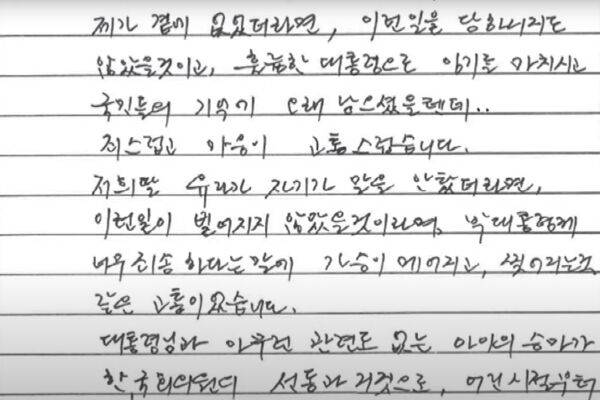 제가 곁에 없었더라면, 이런일을 당하시지도
않았을것이고, 훌륭한 대통령으로 임기를 마치시고
국민들의 기억에 오래 남으셨을텐데..
죄스럽고 마음이 고통스럽습니다.
저희딸 유라가 자기가 말을 안탔더라면,
이런일이 벌어지지 않았을것이라며, 박대통령께
너무 죄송하다는 말에 가슴이 메어지고, 찢어지는것
같은 고통이 있습니다.
대통령님과 아무런 관련도 없는 아이의 승마가
한 국회의원의 선동과 거짓으로, 어건 시점부터